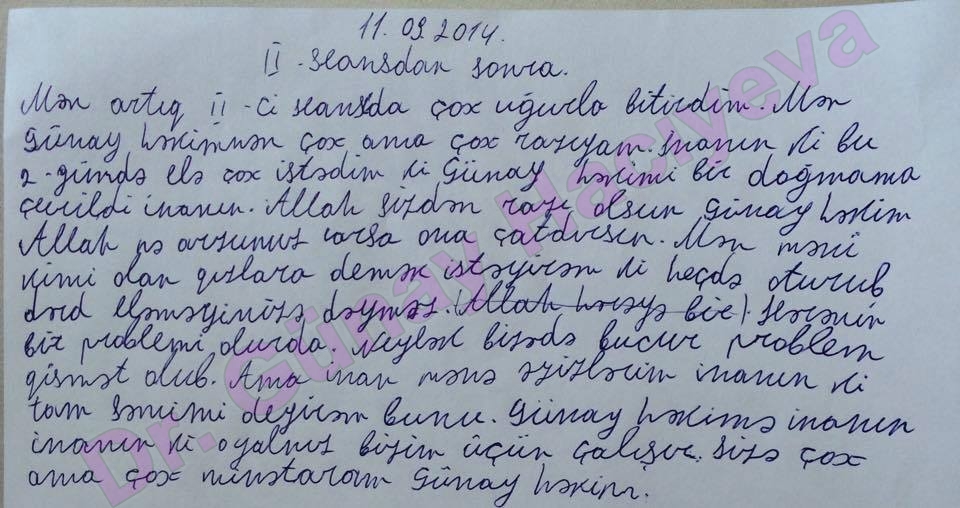 11.09.2014.
II - seansdan sonra.
Mən artıq II - ci seansda çox uğurla bitirdim. Mən
Günay həkimnən çox ama çox razıyam. İnanın ki bu
2-gündə elə çox istədim ki Günay həkimi bir doğmama
çevrildi inanın. Allah sizdən razı olsun Günay həkim
Allah nə arzunuz varsa ona çatdırsın. Mən məni
kimi olan qızlara demək istəyirəm ki heçdə oturub
dərd eləməyinizə dəyməz. (Allah hərəyə bir) Hərənin
bir problemi olurda. Neyləək bizədə bucur problem
qismət olub. Ama inan mənə əzizlərim inanın ki
tam səmimi deyirəm bunu. Günay həkimə inanın
inanın ki o yalnız bizim üçün çalışır. Sizə çox
ama çox minətaram Günay həkim.
Dr. Günay Hacıyeva